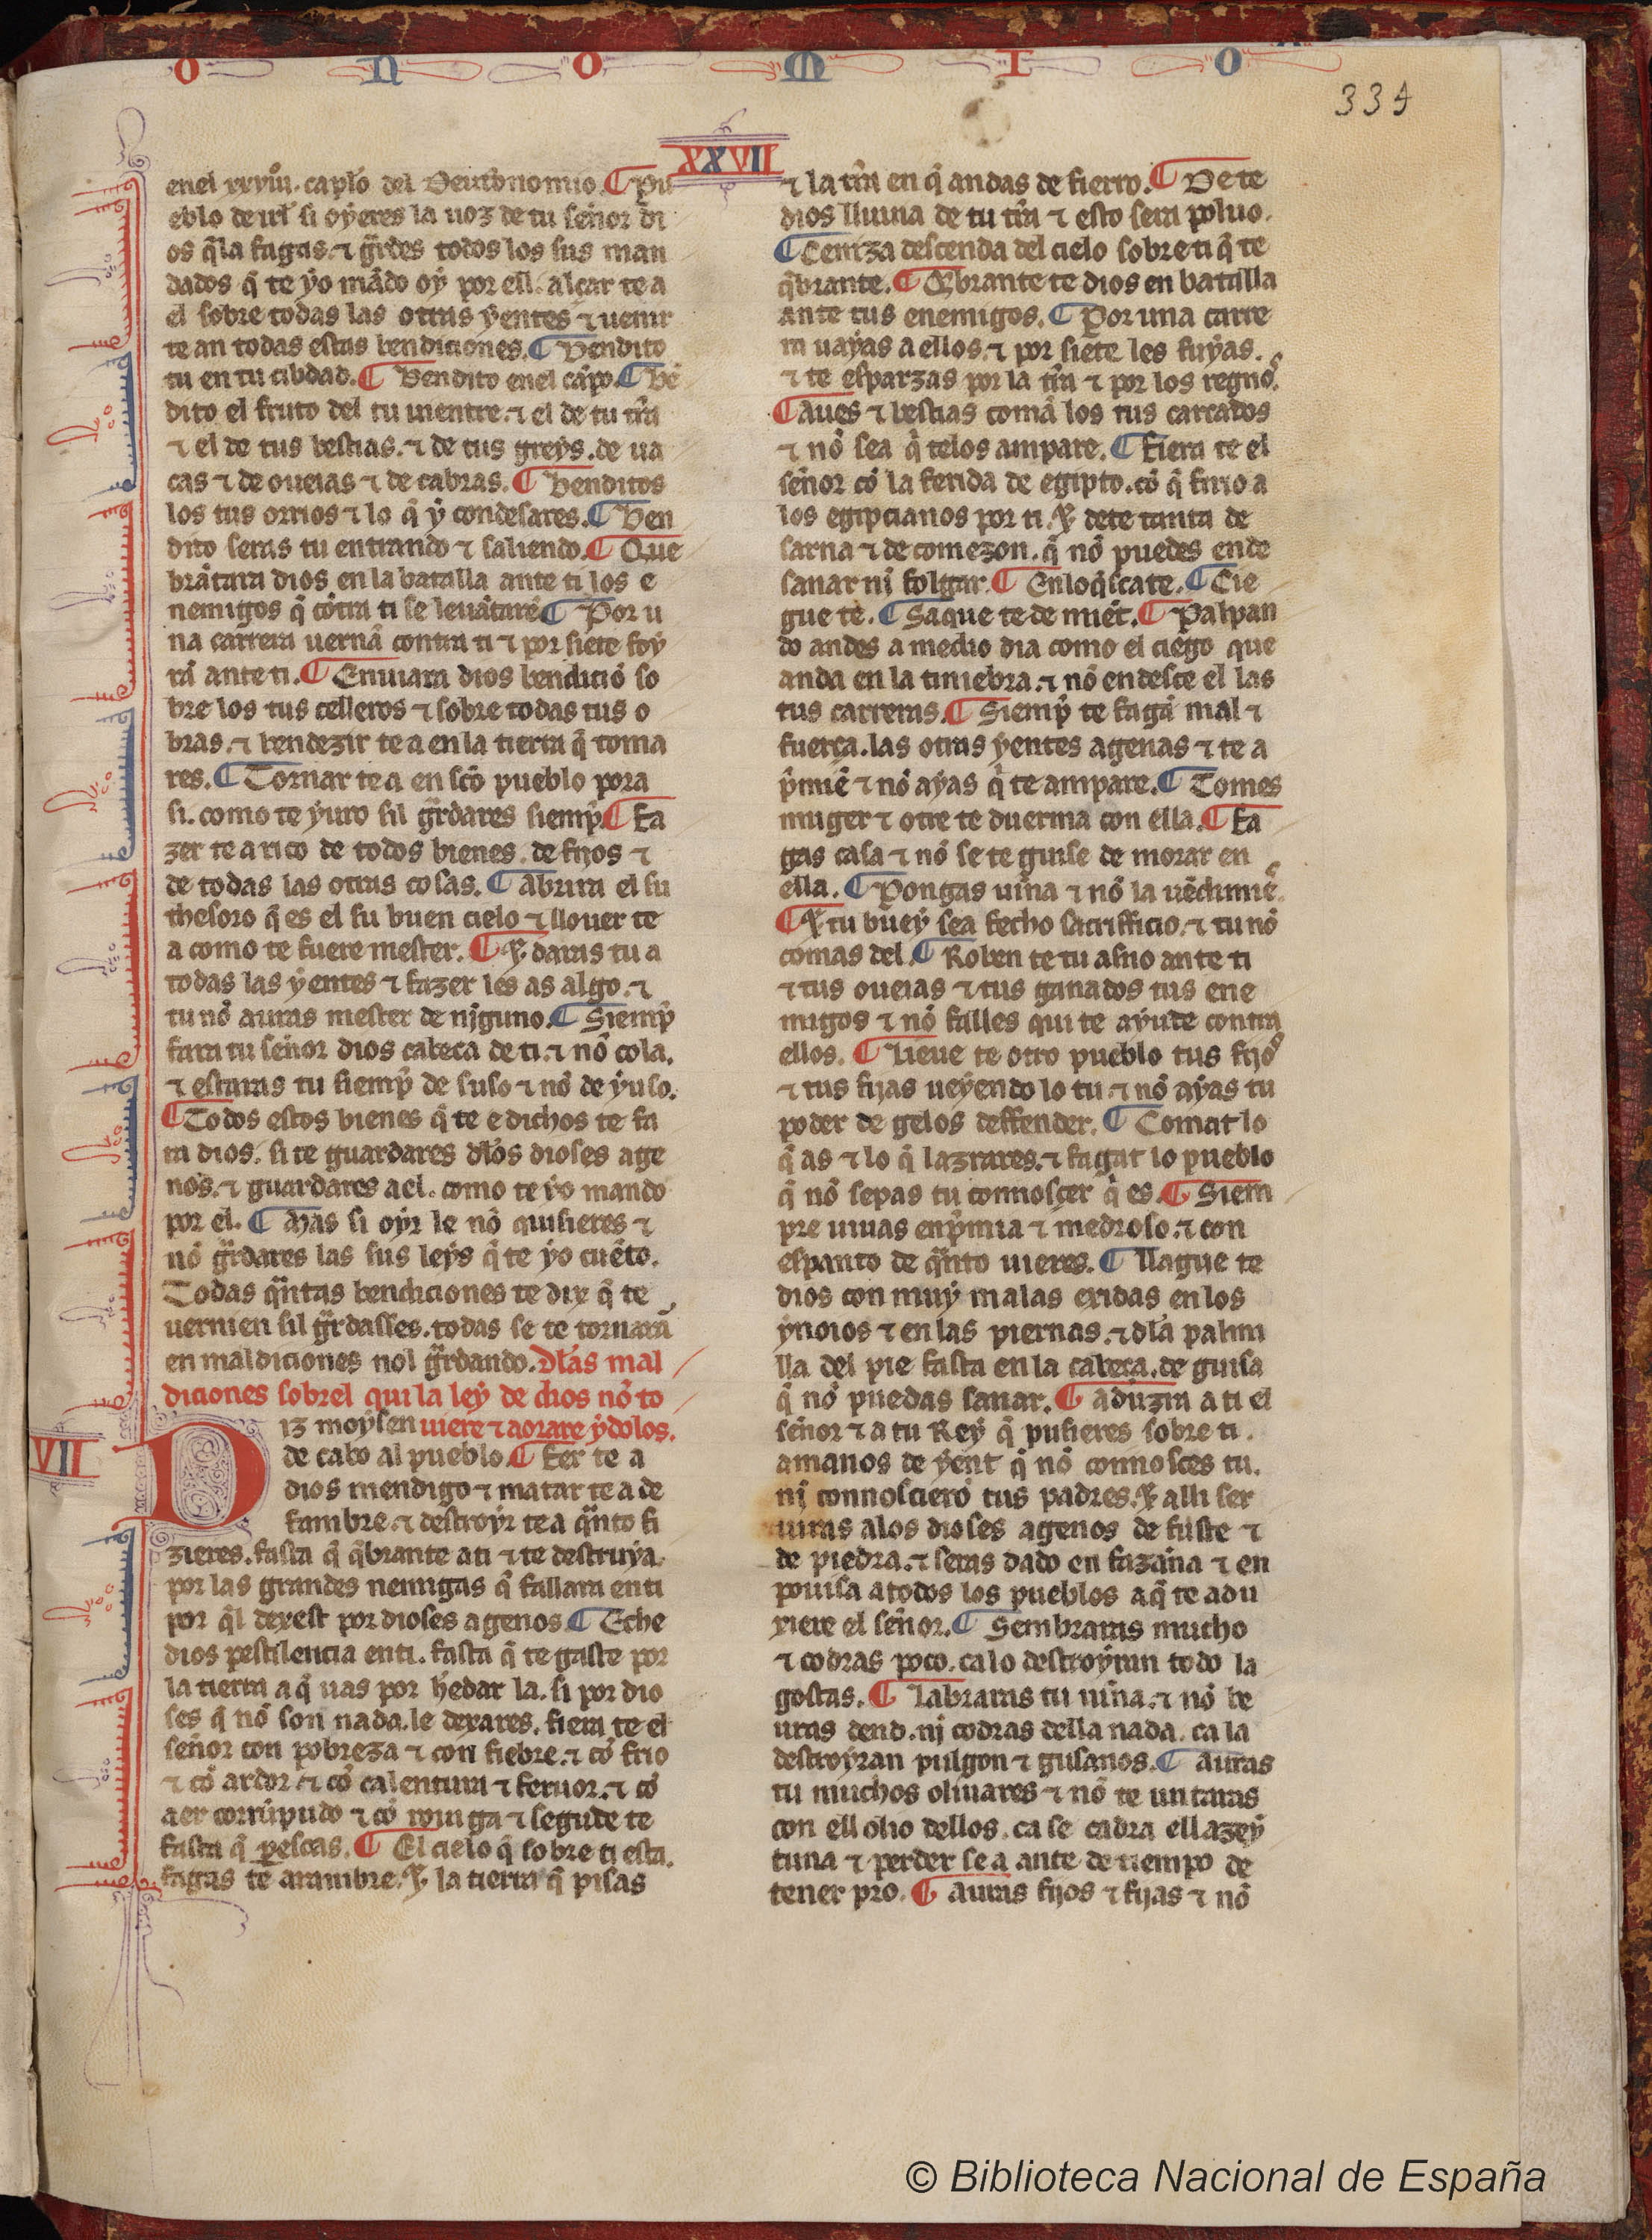 O N O M I O
334
XXVII
enel xxviij. caplo del Deutonomio. ¶ Pu
eblo de irl si oyeres la uoz de tu señor di
os q̃la fagas. ⁊ gr̃des todos los sus man
dados q̃ te yo mãdo oy por ell. alçar te a
el sobre todas las otras yentes ⁊ uenir
te an todas estas bendiciones. ¶ Bendito
tu en tu cibdad. ¶ Bendito enel cãpo. ¶ Bẽ
dito el fruto del tu uientre. ⁊ el de tu tr̃ra
⁊ el de tus bestias. ⁊ de tus greys. de ua
cas ⁊ de oueias ⁊ de cabras. ¶ Benditos
los tus orrios ⁊ lo q̃ y condesares. ¶ Ben
dito seras tu entrando ⁊ saliendo. ¶ Que
brãtara dios en la batalla ante ti los e
nemigos q̃ cõtra ti se leuãtarẽ ¶ Por u
na carrera uernã contra ti ⁊ por siete foy
rã ante ti. ¶ Enuiara dios bendiciõ so
bre los tus celleros ⁊ sobre todas tus o
bras. ⁊ bendezir te a en la tierra q̃ toma
res. ¶ Tornar te a en scõ pueblo pora
si. como te yuro sil gr̃dares siemp̃. ¶ Fa
zer te a rico de todos bienes. de fijos ⁊
de todas las otras cosas. ¶ Abrira el su
thesoro q̃ es el su buen cielo ⁊ llouer te
a como te fuere mester. ¶ ⁊ daras tu a
todas las yentes ⁊ fazer les as algo. ⁊
tu nõ auras mester de njguno. ¶ Siemp̃
fara tu señor dios cabeça de ti. ⁊ nõ cola.
⁊ estaras tu siemp̃ de suso ⁊ nõ de yuso.
¶ Todos estos bienes q̃ te e dichos te fa
ra dios. si te guardares dlos dioses age
nos. ⁊ guardares ael. como te yo mando
por el. ¶ Mas si oyr le nõ quisieres ⁊
nõ gr̃dares las sus leys q̃ te yo cuẽto.
Todas q̃ntas bendiciones te dix q̃ te
uernien sil gr̃dasses. todas se te tornarã
en maldiciones nol gr̃dando. Dlas mal
diciones sobrel qui la ley de dios nõ to
uiere ⁊ aorare ydolos.
VII
Diz moysen
de cabo al pueblo. ¶ Fer te a
dios mendigo ⁊ matar te a de
fambre. ⁊ destroyr te a q̃nto fi
zieres. fasta q̃ q̃brante ati ⁊ te destruya.
por las grandes nemigas q̃ fallara enti
por q̃l dexest por dioses agenos. ¶ Eche
dios pestilencia enti. fasta q̃ te gaste por
la tierra a q̃ uas por hẽdar la. si por dio
ses q̃ nõ son nada. le dexares. fiera te el
señor con pobreza ⁊ con fiebre. ⁊ cõ frio
⁊ cõ ardor. ⁊ cõ calentura ⁊ feruor. ⁊ cõ
aer corrũpudo ⁊ cõ roniga ⁊ segude te
fasta q̃ perescas. ¶ El cielo q̃ sobre ti esta.
fagas te arambre. ⁊ la tierra q̃ pisas
⁊ la tr̃ra en q̃ andas de fierro. ¶ De te
dios lluuia de tu tr̃ra ⁊ esto sera poluo.
¶ Ceniza descenda del cielo sobre ti q̃ te
q̃brante. ¶ Q̃brante te dios en batalla
ante tus enemigos. ¶ Por una carre
ra uayas a ellos. ⁊ por siete les fuyas.
⁊ te esparzas por la tr̃ra ⁊ por los regnos.
¶ Aues ⁊ bestias comã los tus carcados
⁊ nõ sea q̃ telos ampare. ¶ Fiera te el
señor cõ la ferida de egipto. cõ q̃ firio a
los egipcianos por ti. ⁊ dete tanta de
sarna ⁊ de comezon. q̃ nõ puedes ende
sanar ni folgar. ¶ Enloq̃scate. ¶ Cie
gue te. ¶ Saque te de miẽt. ¶ Palpan
do andes a medio dia como el ciego que
anda en la tiniebra. ⁊ nõ endesce el las
tus carreras. ¶ Siemp̃ te fagã mal ⁊
fuerça. las otras yentes agenas ⁊ te a
p̃miẽ ⁊ nõ ayas q̃ te ampare. ¶ Tomes
muger ⁊ otre te duerma con ella. ¶ Fa
gas casa ⁊ nõ se te guise de morar en
ella. ¶ Pongas uiña ⁊ nõ la uẽdimies.
¶ ⁊ tu buey sea fecho sacrifficio. ⁊ tu nõ
comas del. ¶ Roben te tu asno ante ti
⁊ tus oueias ⁊ tus ganados tus ene
migos ⁊ nõ falles qui te ayude contra
ellos. ¶ Lieue te otro pueblo tus fijos
⁊ tus fijas ueyendo lo tu. ⁊ nõ ayas tu
poder de gelos deffender. ¶ Comat lo
q̃ as ⁊ lo q̃ lazrares. ⁊ fagat lo pueblo
q̃ nõ sepas tu connosçer q̃ es. ¶ Siem
pre uiuas enp̃mia ⁊ medroso. ⁊ con
espanto de q̃nto uieres. ¶ Llague te
dios con muy malas eridas en los
ynoios ⁊ en las piernas. ⁊ dla palmi
lla del pie fasta en la cabeça. de guisa
q̃ nõ puedas sanar. ¶ Aduzra a ti el
señor ⁊ a tu Rey q̃ pusieres sobre ti.
amanos de yent q̃ nõ connosces tu.
nj connosçierõ tus padres. ⁊ alli ser
uiras alos dioses agenos de fuste ⁊
de piedra. ⁊ seras dado en fazaña ⁊ en
pouisa a todos los pueblos a q̃ te adu
xiere el señor. ¶ Sembraras mucho
⁊ codras poco. ca lo destroyran todo la
gostas. ¶ Labraras tu uiña. ⁊ nõ be
uras dend. nj codras della nada. ca la
destroyran pulgon ⁊ gusanos. ¶ Auras
tu muchos oliuares ⁊ nõ te untaras
con ell olio dellos. ca se cadra ell azey
tuna ⁊ perder se a ante de tiempo de
tener pro. ¶ Auras fijos ⁊ fijas ⁊ nõ
© Biblioteca Nacional de España